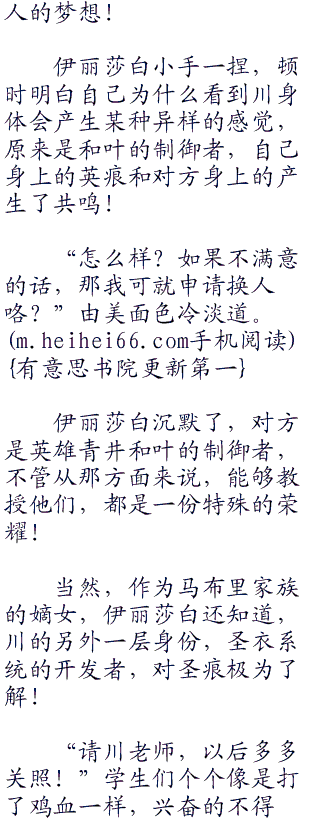 人的梦想！
伊丽莎白小手一捏，顿
时明白自己为什么看到川身
体会产生某种异样的感觉，
原来是和叶的制御者，自己
身上的英痕和对方身上的产
生了共鸣！
“怎么样？如果不满意
的话，那我可就申请换人
咯？”由美面色冷淡道。
(m.heihei66.com手机阅读)
{有意思书院更新第一}
伊丽莎白沉默了，对方
是英雄青井和叶的制御者，
不管从那方面来说，能够教
授他们，都是一份特殊的荣
耀！
当然，作为马布里家族
的嫡女，伊丽莎白还知道，
川的另外一层身份，圣衣系
统的开发者，对圣痕极为了
解！
“请川老师，以后多多
关照！”学生们个个像是打
了鸡血一样，兴奋的不得